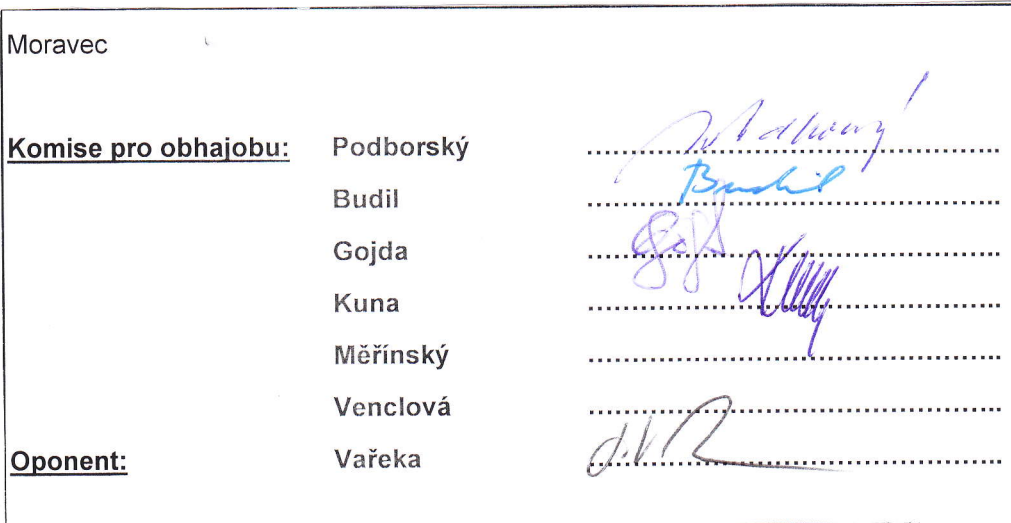 Moravec
Komise pro obhajobu: Podborský ........................................
Budil ........................................
Budil
Gojda ........................................
Kuna ........................................
Měřínský ........................................
Venclová ........................................
Oponent: Vařeka ........................................